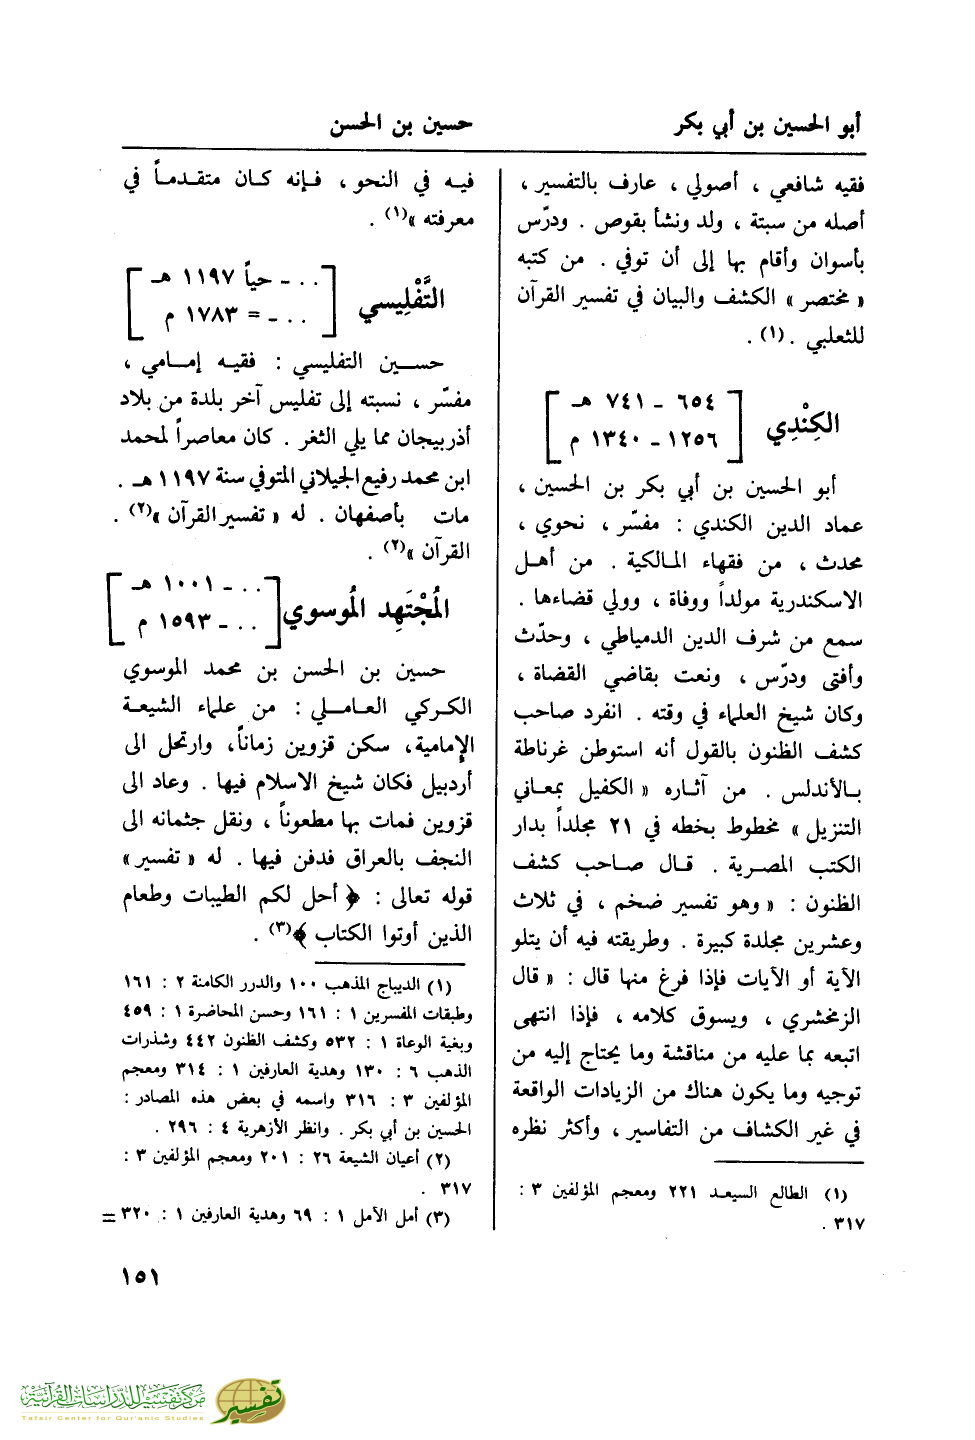 أبو الحسين بن أبي بكر
حسين بن الحسن
فقيه شافعي ، أصولي ، عارف بالتفسير ،
أصله من سبتة ، ولد ونشأ بقوص . ودرّس
بأسوان وأقام بها إلى أن توفي . من كتبه
« مختصر » الكشف والبيان في تفسير القرآن
للثعلبي .(١) .
الكِنْدِي
[ ٦٥٤ - ٧٤١ هـ
١٢٥٦ - ١٣٤٠ م ]
أبو الحسين بن أبي بكر بن الحسين ،
عماد الدين الكندي : مفسّر ، نحوي ،
محدث ، من فقهاء المالكية . من أهل
الاسكندرية مولداً ووفاة ، وولي قضاءها .
سمع من شرف الدين الدمياطي ، وحدّث
وأفتى ودرّس ، ونعت بقاضي القضاة ،
وكان شيخ العلماء في وقته . انفرد صاحب
كشف الظنون بالقول أنه استوطن غرناطة
بالأندلس . من آثاره « الكفيل بمعاني
التنزيل » مخطوط بخطه في ٢١ مجلداً بدار
الكتب المصرية . قال صاحب كشف
الظنون : « وهو تفسير ضخم ، في ثلاث
وعشرين مجلدة كبيرة . وطريقته فيه أن يتلو
الآية أو الآيات فإذا فرغ منها قال : « قال
الزمخشري ، ويسوق كلامه ، فإذا انتهى
اتبعه بما عليه من مناقشة وما يحتاج إليه من
توجيه وما يكون هناك من الزيادات الواقعة
في غير الكشاف من التفاسير ، وأكثر نظره
(١) الطالع السيعد ٢٢١ ومعجم المؤلفين ٣ :
٣١٧ .
فيه في النحو ، فإنه كان متقدماً في
معرفته »(١) .
التَّفْلِيسي
[ . . - حياً ١١٩٧ هـ
. . - = ١٧٨٣ م ]
حسين التفليسي : فقيه إمامي ،
مفسّر ، نسبته إلى تفليس آخر بلدة من بلاد
أذربيجان مما يلي الثغر . كان معاصراً لمحمد
ابن محمد رفيع الجيلاني المتوفي سنة ١١٩٧ هـ .
مات بأصفهان . له « تفسير القرآن »(٢) .
القرآن »(٢) .
المُجْتَهِد المُوسوي
[ . . - ١٠٠١ هـ
. . - ١٥٩٣ م ]
حسين بن الحسن بن محمد الموسوي
الكركي العاملي : من علماء الشيعة
الإمامية، سكن قزوين زماناً، وارتحل الى
أردبيل فكان شيخ الاسلام فيها . وعاد الى
قزوين فمات بها مطعوناً ، ونقل جثمانه الى
النجف بالعراق فدفن فيها . له « تفسير »
قوله تعالى : ﴿ أحل لكم الطيبات وطعام
الذين أوتوا الكتاب ﴾(٣) .
(١) الديباج المذهب ١٠٠ والدرر الكامنة ٢ : ١٦١
وطبقات المفسرين ١ : ١٦١ وحسن المحاضرة ١ : ٤٥٩
وبغية الوعاة ١ : ٥٣٢ وكشف الظنون ٤٤٢ وشذرات
الذهب ٦ : ١٣٠ وهدية العارفين ١ : ٣١٤ ومعجم
المؤلفين ٣ : ٣١٦ واسمه في بعض هذه المصادر :
الحسين بن أبي بكر . وانظر الأزهرية ٤ : ٢٩٦ .
(٢) أعيان الشيعة ٢٦ : ٢٠١ ومعجم المؤلفين ٣ :
٣١٧ .
(٣) أمل الآمل ١ : ٦٩ وهدية العارفين ١ : ٣٢٠ =
١٥١
مركز تفسير للدراسات القرآنية
Tafsir Center for Qur'anic Studies
تفسير